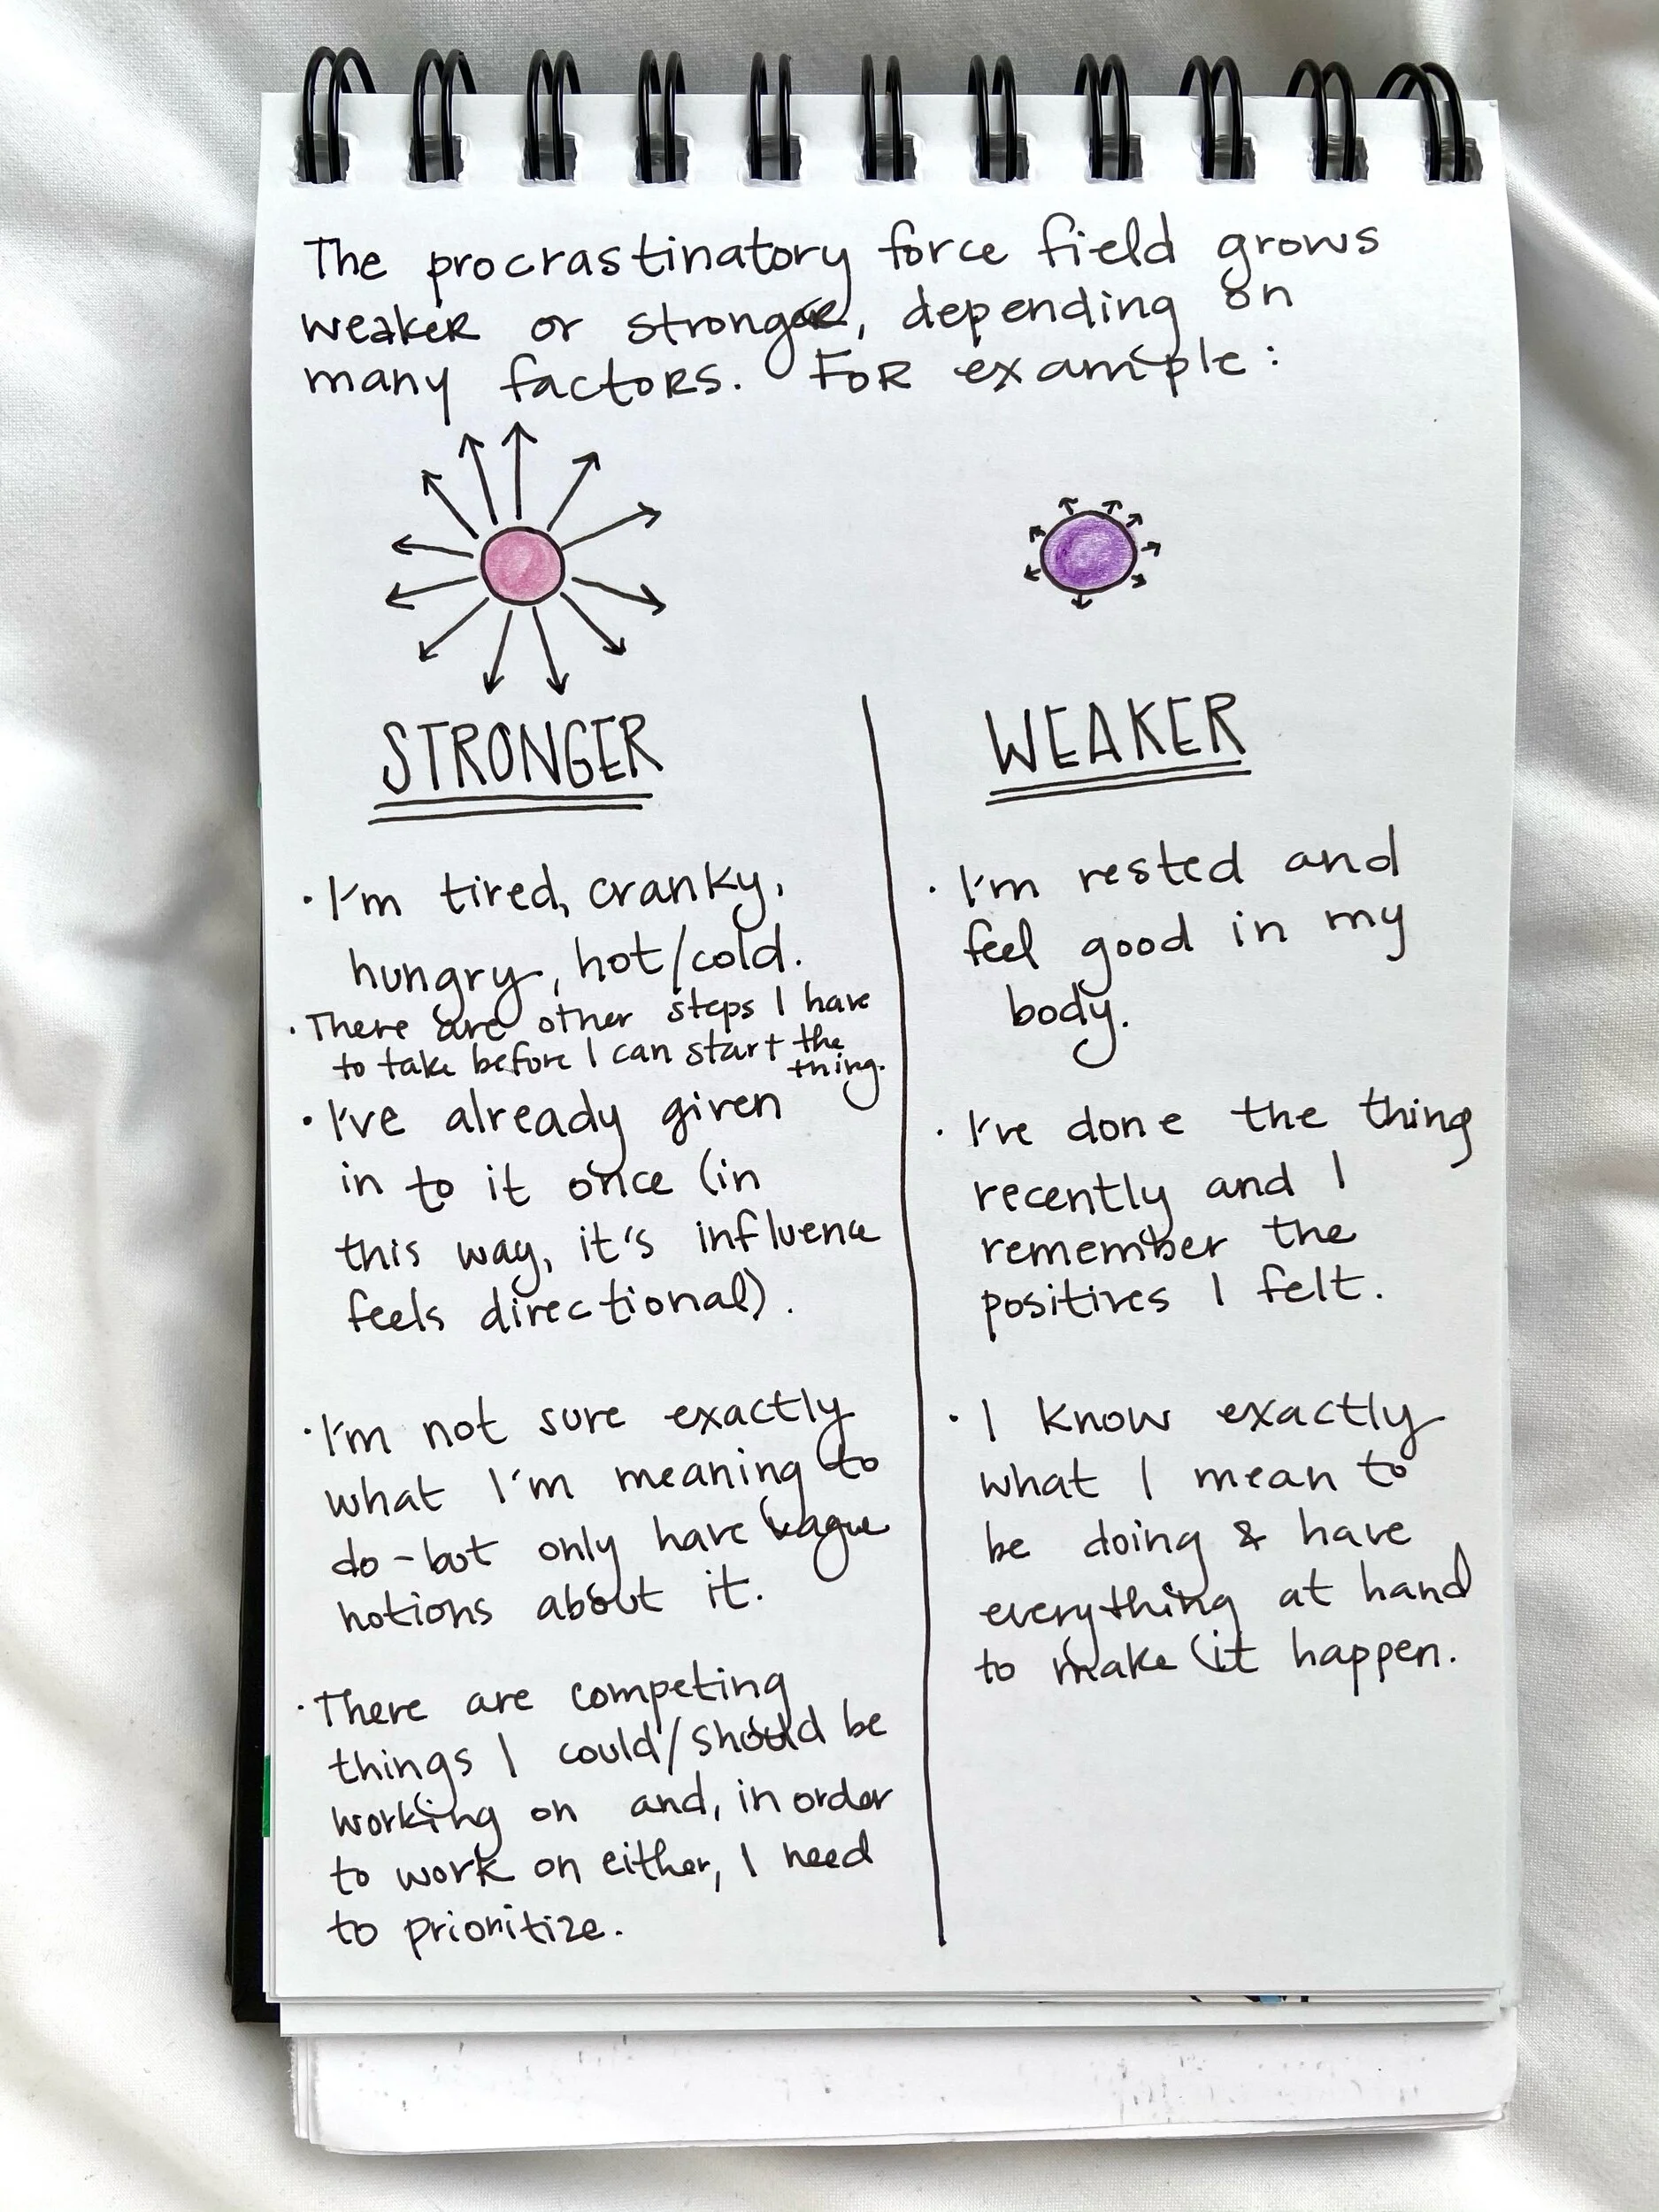 The procrastinatory force field grows
weaker or stronger, depending on
many factors. For example:
STRONGER
• I'm tired, cranky,
hungry, hot/cold.
• There are other steps I have
to take before I can start the
thing.
• I've already given
in to it once (in
this way, it's influence
feels directional).
• I'm not sure exactly
what I'm meaning to
do - but only have vague
notions about it.
• There are competing
things I could/should be
working on and, in order
to work on either, I need
to prioritize.
WEAKER
• I'm rested and
feel good in my
body.
• I've done the thing
recently and I
remember the
positives I felt.
• I know exactly
what I mean to
be doing & have
everything at hand
to make it happen.